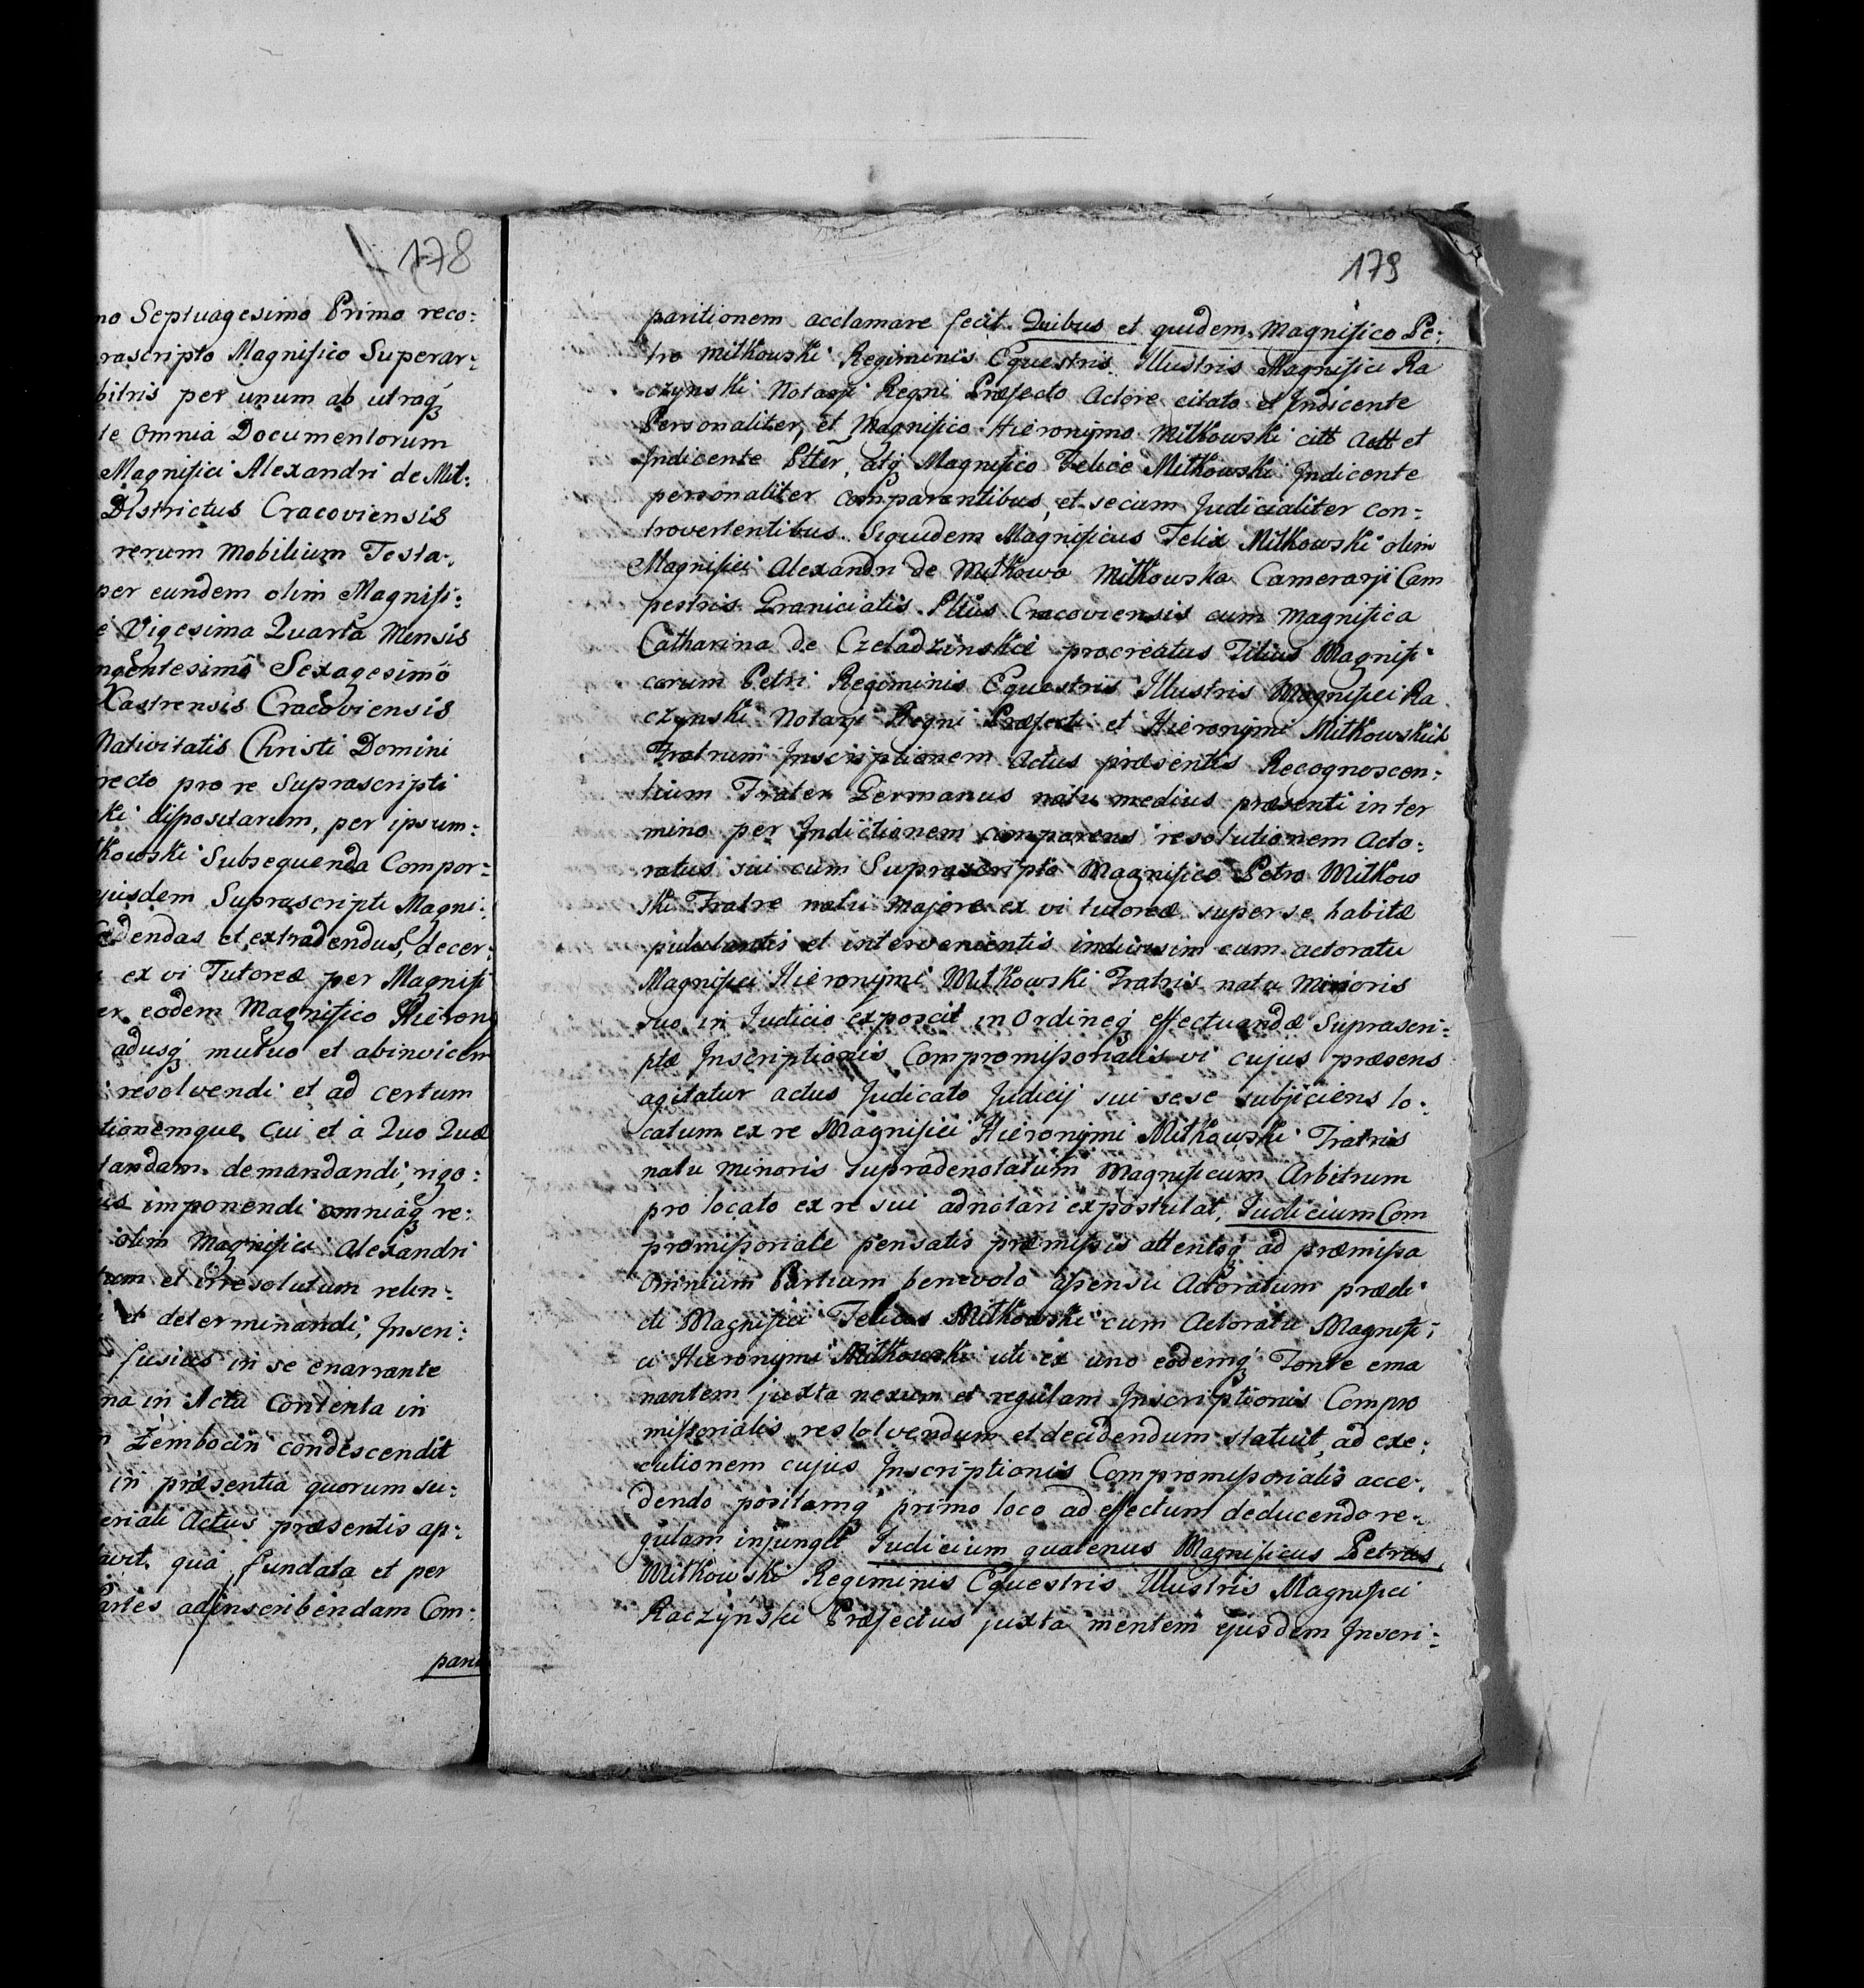 178
no Septuagesimo Primo reco:
rascripto Magnifico Superar:
bitris per unum ab utraq
te Omnia Documentorum
Magnifici Alexandri de Mit:
Districtus Cracoviensis
rerum Mobilium Testa:
per eundem olim Magnifi:
e Vigesima Quarta Mensis
ngentesimo Sexagesimo
Castrensis Cracoviensis
Nativitatis Christi Domini
recto pro re Suprascripti
ki dispositarum, per ipsum:
tkowski Subsequenda Compor:
ejusdem Suprascripti Magni:
edendas et extradendus, decer:
ex vi Tutoreæ per Magnifi
er eodem Magnifico Hieron
adusq mutuo et abinvicem
resolvendi et ad certum
tionemque Cui et à Quo Quæ
tandam demandandi, rigo:
is imponendi omniaq re:
olim Magnifici Alexandri
tum et irresolutum relin:
et determinandi, Inscri:
fusius in se enarrante
na in Acta Contenta in
Zembocin condescendit
in præsentia quorum su:
eriali Actus præsentis ap:
avit, qua fundata et per
artes ad inscribendam Com:
pari
179
paritionem acclamare fecit. Quibus et quidem Magnifico Pe:
tro Mitkowski Regiminis Equestris Illustris Magnifici Ra
czynski Notarji Regni Præfecto Actore citato et Indicente
Personaliter, et Magnifico Hieronymo Mitkowski citt Actt et
Indicente Ptter, atq Magnifico Felice Mitkowski Indicente
personaliter comparantibus, et secum Judicialiter con:
trovertentibus. Siquidem Magnificus Felix Mitkowski olim
Magnifici Alexandri de Mitkowa Mitkowska Camerarji Cam
pestris Granicialis Pttus Cracoviensis cum Magnifica
Catharina de Czeladzinskie procreatus Filius Magnifi
corum Petri Regiminis Equestris Illustris Magnifici Ra
czynski Notarji Regni Præfecti et Hieronymi Mitkowskich
Fratrum Inscriptionem Actus præsentis Recognoscen:
tium Frater Germanus natu medius præsenti in ter
mino per Indictionem comparens resolutionem Acto:
ratus sui cum Suprascripto Magnifico Petro Mitkow
ski Fratre natu majore ex vi tutoreæ super se habitæ
pululantis et intervenientis indivisim cum actoratu
Magnifici Hieronymi Mitkowski Fratris natu minoris
suo in Judicio exposcit in Ordineq effectuandæ Suprascri:
ptæ Inscriptionis Compromissorialis vi cujus præsens
agitatur actus Judicato Judicij sui sese subjiciens lo:
catum ex re Magnifici Hieronymi Mitkowski Fratris
natu minoris supradenotatum Magnificum Arbitrum
pro locato ex re sui adnotari expostulat, Judicium Com
promissoriale pensatis præmissis attentoq ad præmissa
Omnium Partium benevolo assensu Actoratum prædi
cti Magnifici Felicis Mitkowski cum Actoratu Magnifi:
ci Hieronymi Mitkowski uti ex uno eodemq Fonte ema
nantem juxta nexum et regulam Inscriptionis Compro
missorialis resolvendum et decidendum statuit, ad exe:
cutionem cujus Inscriptionis Compromissorialis acce:
dendo positamq primo loco ad effectum deducendo re:
gulam injungit Judicium quatenus Magnificus Petrus
Mitkowski Regiminis Equestris Illustris Magnifici
Raczynski Præfectus juxta mentem ejusdem Inscri: